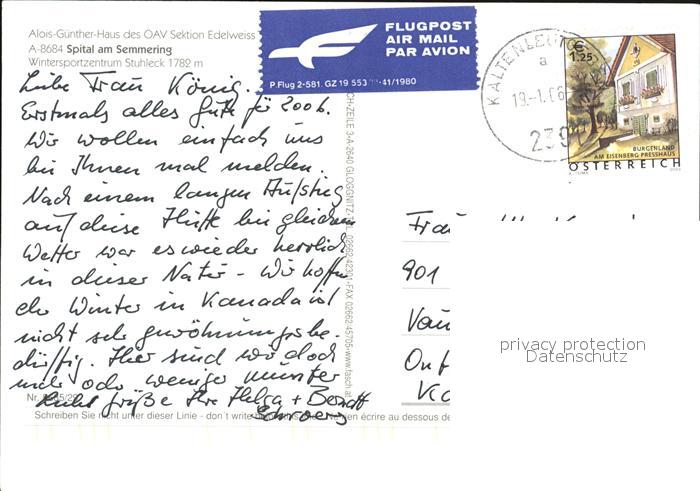 Alois-Günther-Haus des ÖAV Sektion Edelweiss
A-8684 Spital am Semmering
Wintersportzentrum Stuhleck 1782 m
FLUGPOST
AIR MAIL
PAR AVION
P.Flug 2-581. GZ 19 553 41/1980
KALTENLEUTG
a
19.-1.06
239
€
1.25
BURGENLAND
AM EISENBERG PRESSHAUS
ÖSTERREICH
Liebe Frau König.
Erstmals alles Gute für 2006.
Wir wollen einfach uns
bei Ihnen mal melden.
Nach einem langen Aufstieg
auf diese Hütte bei gleichem
Wetter war es wieder herrlich
in dieser Natur - Wir hoffen
der Winter in Kanada ist
nicht sehr gewöhnungsbe-
dürftig. Hier sind wir doch
mehr oder weniger munter
Grüße Ihre Helga +
CH-ZEILE 3-A-2640 GLOGGNITZ-TEL. 02662-42201-FAX 02662-45705-www.fasch.at
Frau
901
Vau
Ont
Ka
privacy protection
Datenschutz
Nr.
Schreiben Sie nicht unter dieser Linie - don´t write en écrire au dessous de